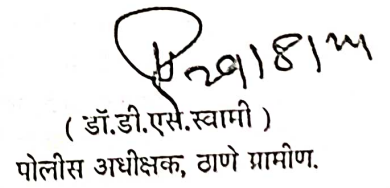 ( डॉ.डी.एस.स्वामी )
पोलीस अधीक्षक, ठाणे ग्रामीण.